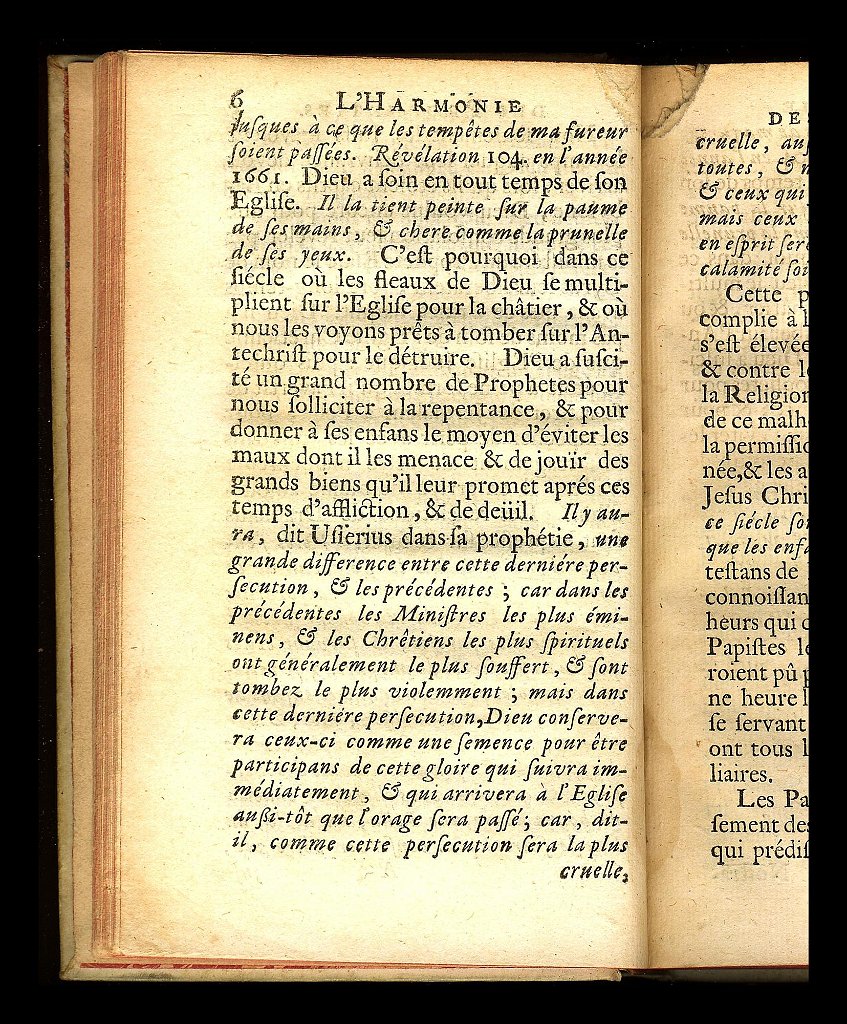 6 L'HARMONIE
jusques à ce que les tempêtes de ma fureur
ſoient paſſées. Révélation 104. en l'année
1661. Dieu a ſoin en tout temps de ſon
Egliſe. Il la tient peinte ſur la paume
de ſes mains, & chere comme la prunelle
de ſes yeux. C'eſt pourquoi dans ce
ſiécle où les fleaux de Dieu ſe multi-
plient ſur l'Egliſe pour la châtier, & où
nous les voyons prêts à tomber ſur l'An-
techriſt pour le détruire. Dieu a ſuſci-
té un grand nombre de Prophetes pour
nous ſolliciter à la repentance, & pour
donner à ſes enfans le moyen d'éviter les
maux dont il les menace & de jouïr des
grands biens qu'il leur promet aprés ces
temps d'affliction, & de deüil. Il y au-
ra, dit Uſſerius dans ſa prophétie, une
grande difference entre cette derniére per-
ſecution, & les précédentes; car dans les
précédentes les Miniſtres les plus émi-
nens, & les Chrêtiens les plus ſpirituels
ont généralement le plus ſouffert, & ſont
tombez le plus violemment; mais dans
cette derniére perſecution, Dieu conſerve-
ra ceux-ci comme une ſemence pour être
participans de cette gloire qui ſuivra im-
médiatement, & qui arrivera à l'Egliſe
außi-tôt que l'orage ſera paſſé; car, dit-
il, comme cette perſecution ſera la plus
cruelle,
DES
cruelle, auſ
toutes, & n
& ceux qui
mais ceux
en eſprit ſer
calamité ſoi
Cette p
complie à l
s'eſt élevée
& contre l
la Religion
de ce malh
la permiſſio
née, & les a
Jeſus Chri
ce ſiécle ſo
que les enfa
teſtans de
connoiſſan
heurs qui
Papiſtes l
roient pû p
ne heure l
ſe ſervant
ont tous l
liaires.
Les Pa
ſement des
qui prédiſ